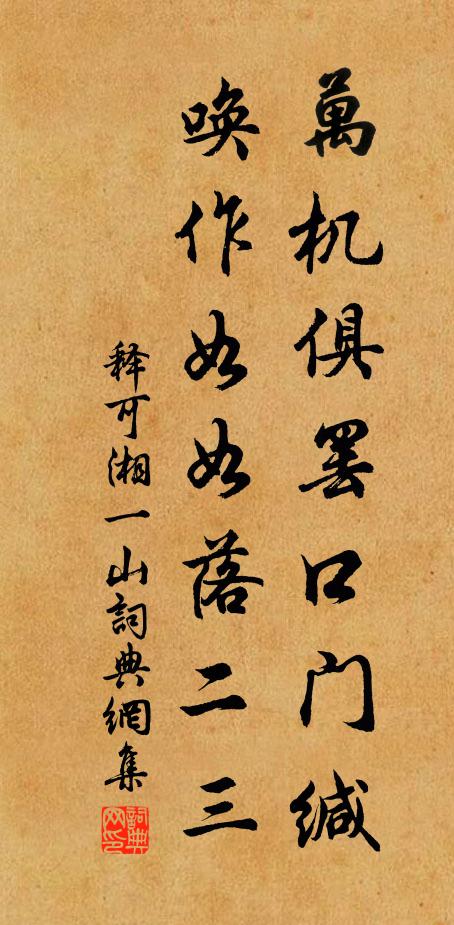 萬机俱罢口门缄
唤作如如落二三
释可湘一山詞典網集
詞典网印